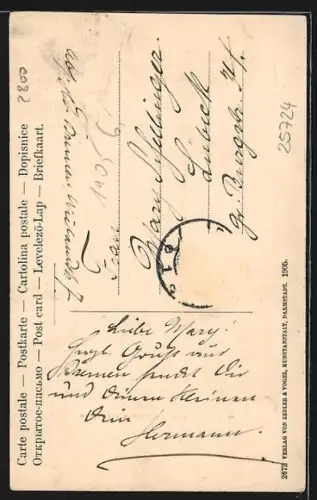 2800
Carte postale — Postkarte — Cartolina postale — Dopisnice
Открытое-письмо — Post card — Levelező-Lap — Briefkaart.
Frau
Mary Schillinger.
Lübeck
gr. Burgstr.
25724
Liebe Mary!
Herzl. Gruß aus
Bremen sendet Dir
und deinen Kleinen
Dein
Hermann.
2672 VERLAG VON ZEDLER & VOGEL, KUNSTANSTALT, DARMSTADT. 1905.